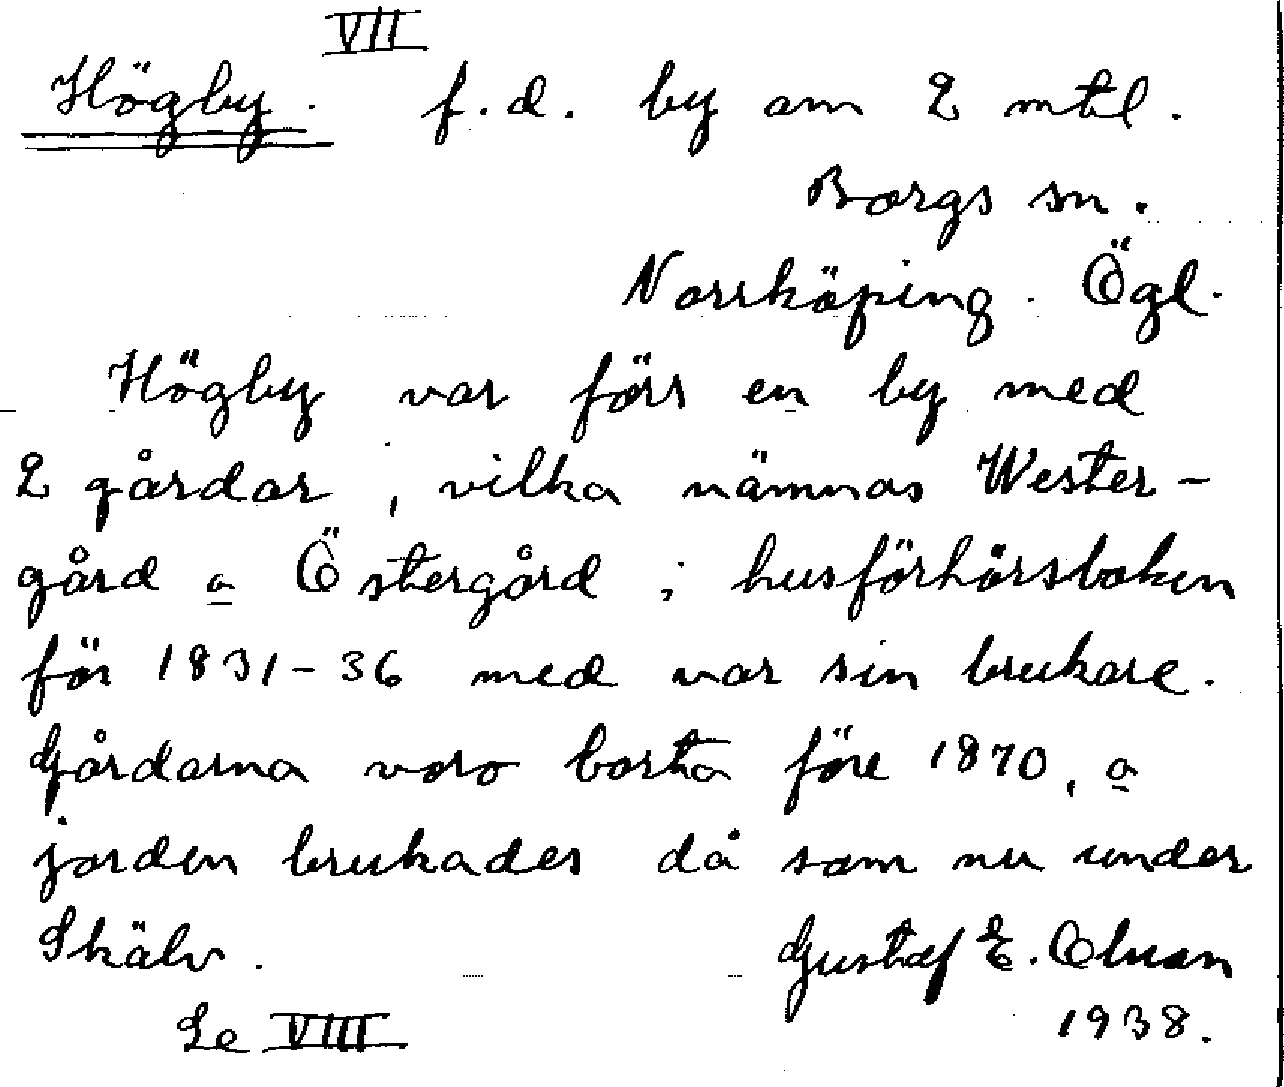 VII
Högby. f.d. by om 2 mtl.
Borgs sn.
Norrköping. Ögl.
Högby var förr en by med
2 gårdar, vilka nämnas Wester-
gård a Östergård i husförhörsboken
för 1831-36 med var sin brukare.
Gårdarna voro borta före 1870, a
jorden brukades då som nu under
Skälv. Gustaf E.
Se VIII 1938.